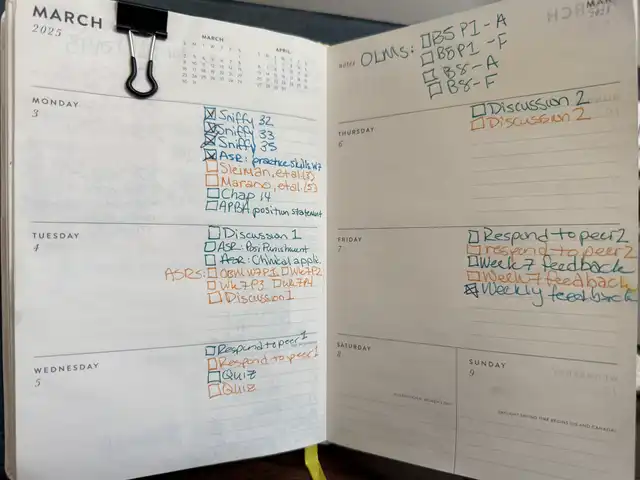 MARCH
2025
MARCH
APRIL
MONDAY
3
☒ Sniffy 32
☒ Sniffy 33
☒ Sniffy 35
☒ ASR: practice skills W7
☐ Sleiman, et al. (3)
☐ Marano, et al. (5)
☐ Chap 14
☐ APBA position statement
TUESDAY
4
☐ Discussion 1
☐ ASR: Posi Punishment
☐ ASR: Clinical applic.
ASRs: ☐ OBM W7P1 ☐ WK7P2
☐ WK7P3 ☐ WK7P4
☐ Discussion 1
WEDNESDAY
5
☐ Respond to peer 1
☐ Respond to peer 1
☐ Quiz
☐ Quiz
NOTES
OLMS: ☐ B5P1-A
☐ B5P1-F
☐ B8-A
☐ B8-F
THURSDAY
6
☐ Discussion 2
☐ Discussion 2
FRIDAY
7
☐ Respond to peer 2
☐ respond to peer 2
☐ Week 7 feedback
☐ Week 7 feedback
☒ Weekly feedback
SATURDAY
8
SUNDAY
9
DAYLIGHT SAVING TIME BEGINS (US AND CANADA)